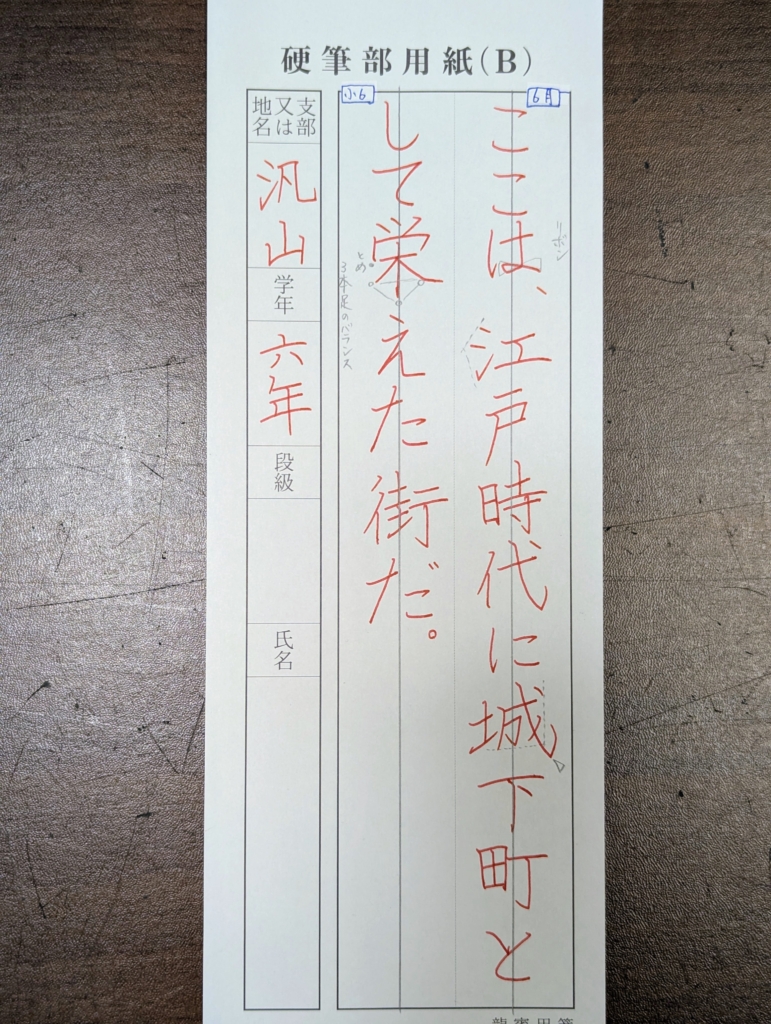 硬筆部用紙(B)
6月
ここは、江戸時代に城下町と
リボン
小6
して栄えた街だ。
とめ
3本足のバランス
支部又は地名
汎山
学年
六年
段級
氏名